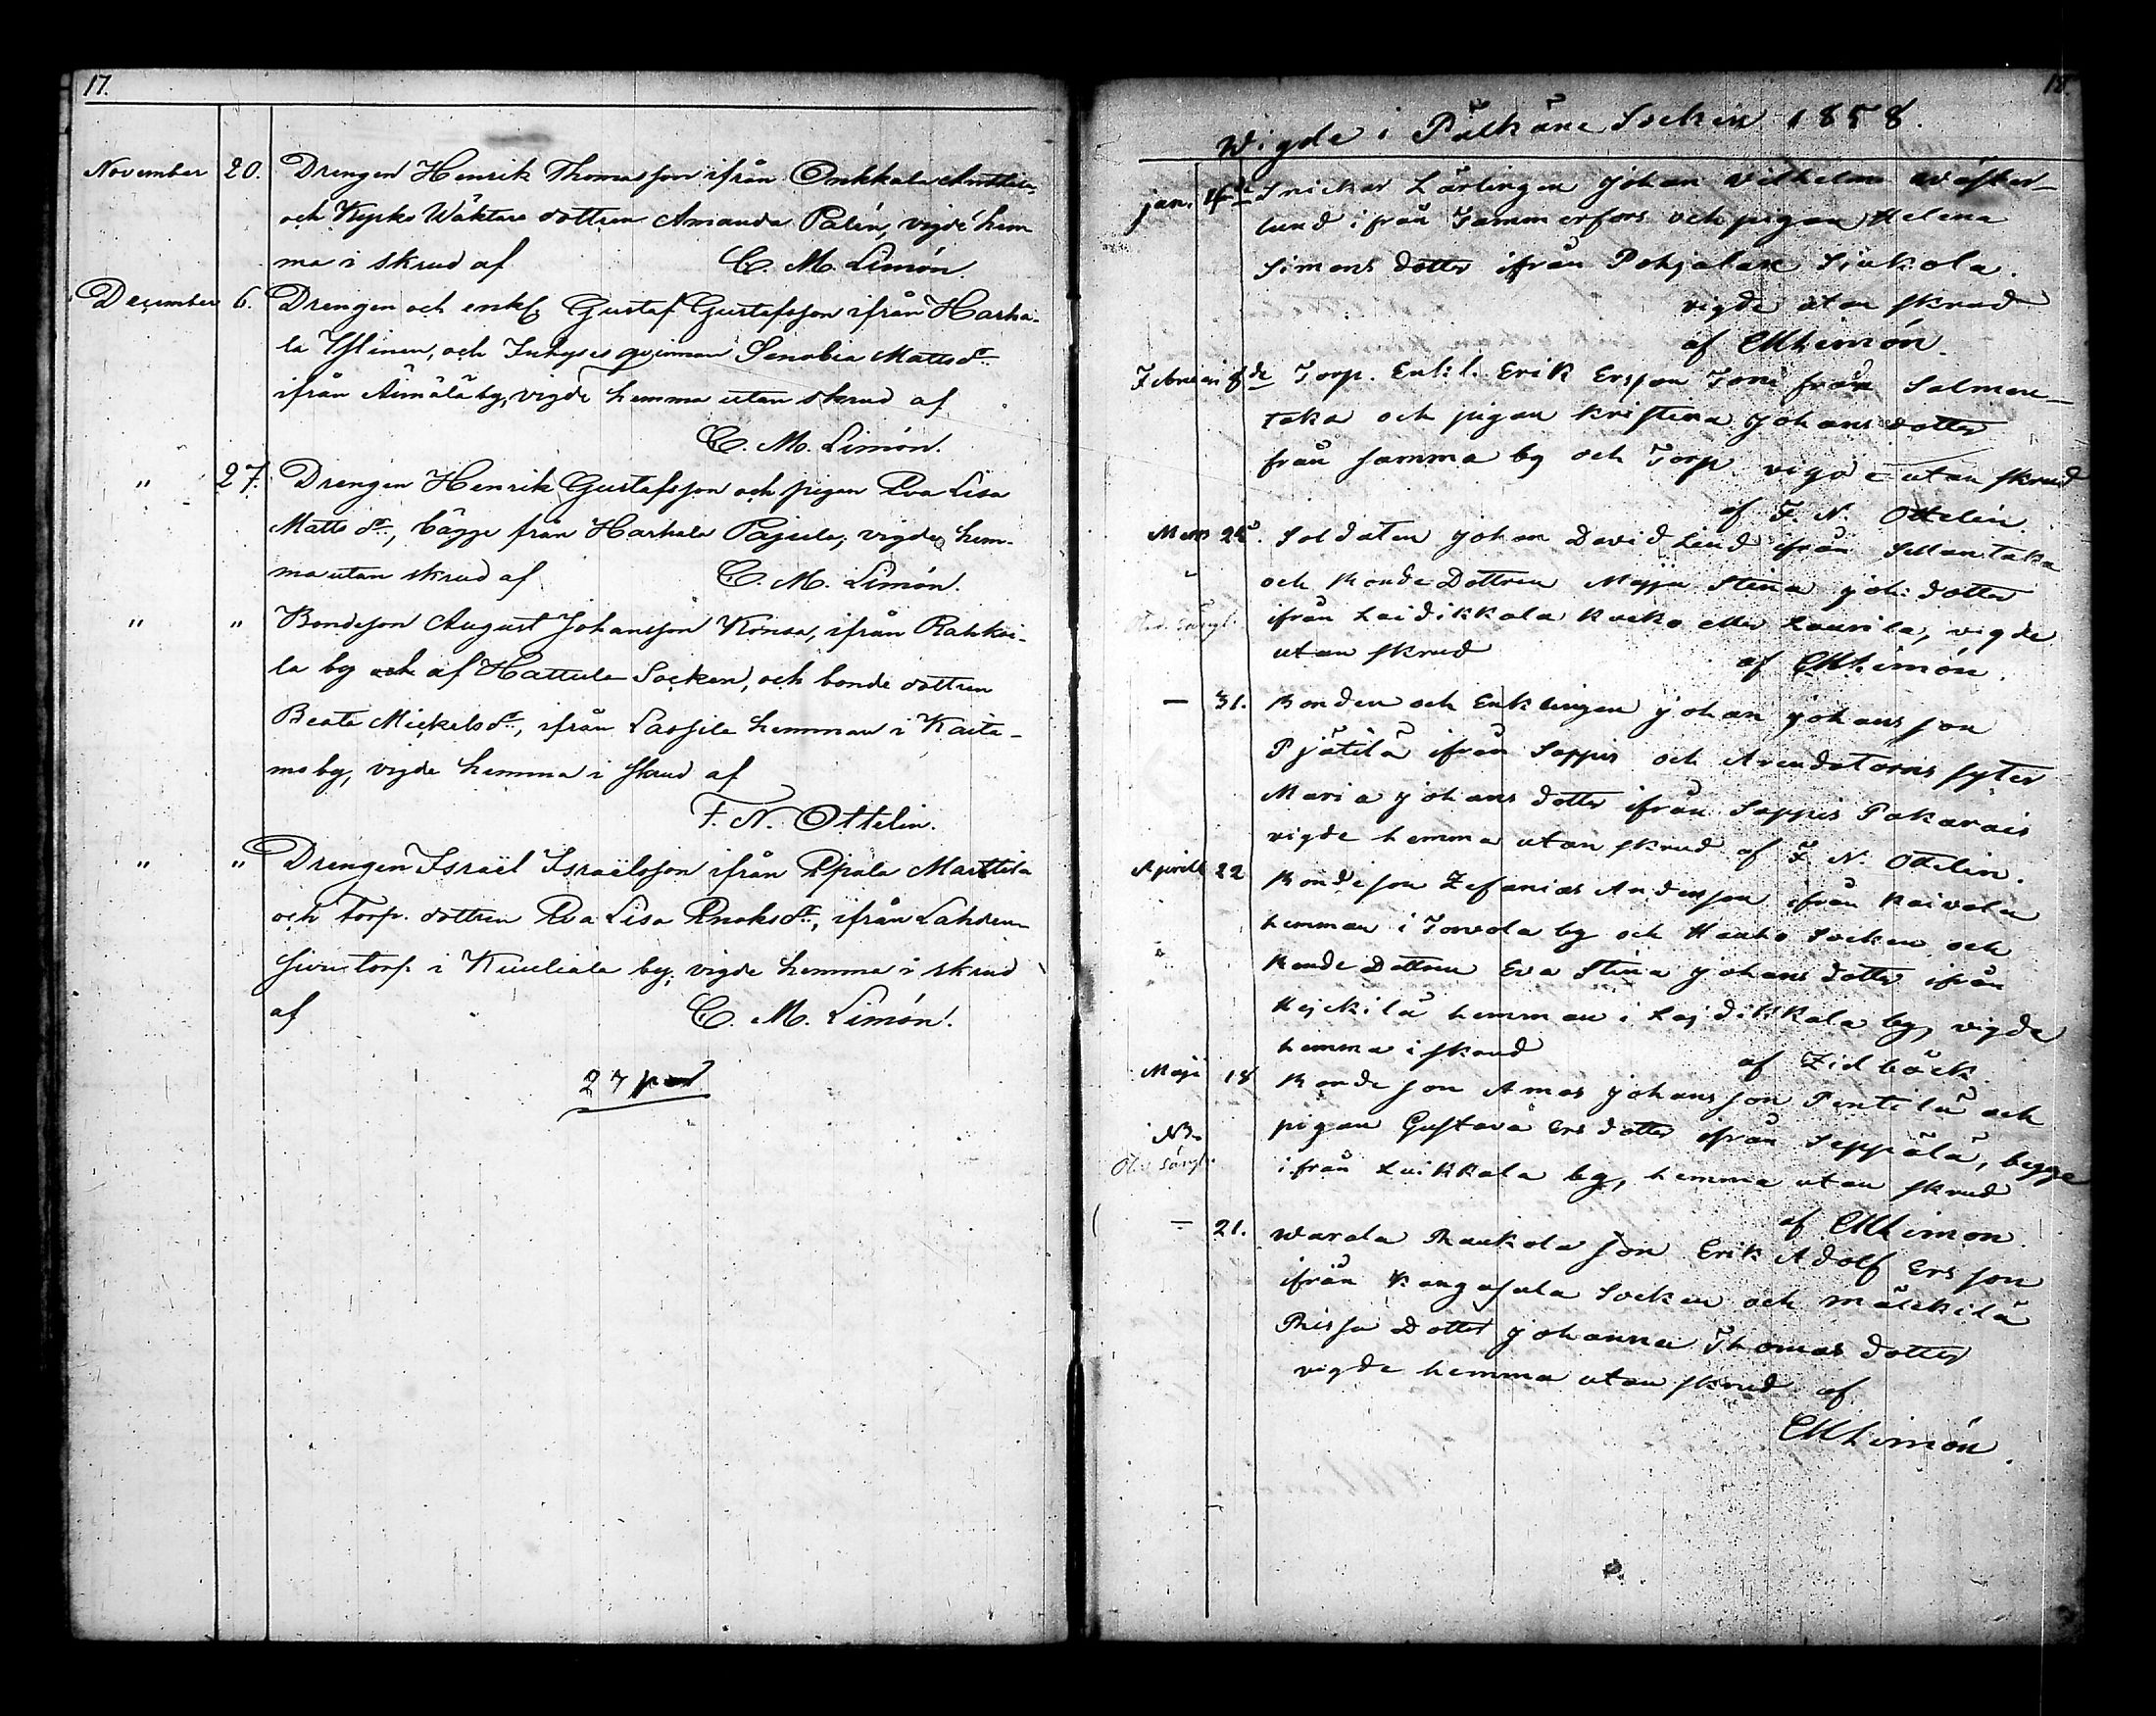 17.
November 20. Drengen Henrik Thomasson ifrån Onkkala Anttila,
och Kyrko Wäktare dottren Amanda Palén, vigde hem
ma i skrud af C. M. Limón.
December 6. Drengen och enkl. Gustaf Gustafsson ifrån Harha-
la Yllinen, och Inhyses qvinnan Senobia Matts dr
ifrån Äimälä by, vigde hemma utan skrud af
C. M. Limón.
" 27. Drengen Henrik Gustafsson och pigan Eva Lisa
Matts dr, bägge från Harhala Pajula, vigde hem-
ma utan skrud af C. M. Limón.
" " Bondeson August Johansson Konsa, ifrån Rahkoi-
la by och af Hattula Socken, och bonde dottren
Beata Mickels dr, ifrån Lassila hemman i Kaita-
mo by, vigde hemma i skrud af
F. N. Ottelin.
" " Drengen Israël Israëlsson ifrån Epala Marttila
och Torp. dottren Eva Lisa Enoks dr, ifrån Lahden-
sivu torp i Kuuliala by, vigde hemma i skrud
af C. M. Limón.
27 par
18.
Wigde i Pälkäne Socken 1858.
jan. 4de Snickar Lärlingen Johan Wilhelm Wäster-
lund ifrån Tammerfors och pigan Helena
Simons dotter ifrån Pohjalax Siukola.
vigde utan skrud
af CM Limón.
Februari 8de Torp. Enkl. Erik Ersson Toni från Salmen-
taka och pigan Kristina Johans dotter
från samma by och Torp vigde utan skrud
af F. N. Ottelin
Mars 25. Soldaten Johan David Lind ifrån Salmentaka
och Bonde Dottren Majja Stina Joh: dotter
ifrån Laidikkala Kucko eller Laurila, vigde
utan skrud af CM Limón.
— 31. Bonden och Enklingen Johan Johansson
Pjätilä ifrån Sappis och Arendatorns syster
Maria Johans dotter ifrån Sappis Pakarais
vigde hemma utan skrud af F. N. Ottelin.
Aprill 22 Bondeson Zefanias Andersson ifrån Kaivola
hemman i Torvola by och Hauho Socken och
Bonde Dottren Eva Stina Johans dotter ifrån
Hejckilä hemman i Lajdikkala by, vigde
hemma i skrud af Zidbäck.
Maji 18 Bonde son Amos Johansson Pentilä och
NB. pigan Gustava Ers dotter ifrån Seppälä, begge
ifrån Luikkala by, hemma utan skrud
af CM Limon.
— 21. Warala Raukola son Erik Adolf Ersson
ifrån Kangasala Socken och Mälkilä
Rissa Dotter Johanna Thomas dotter
vigde hemma utan skrud af
CM Limón.